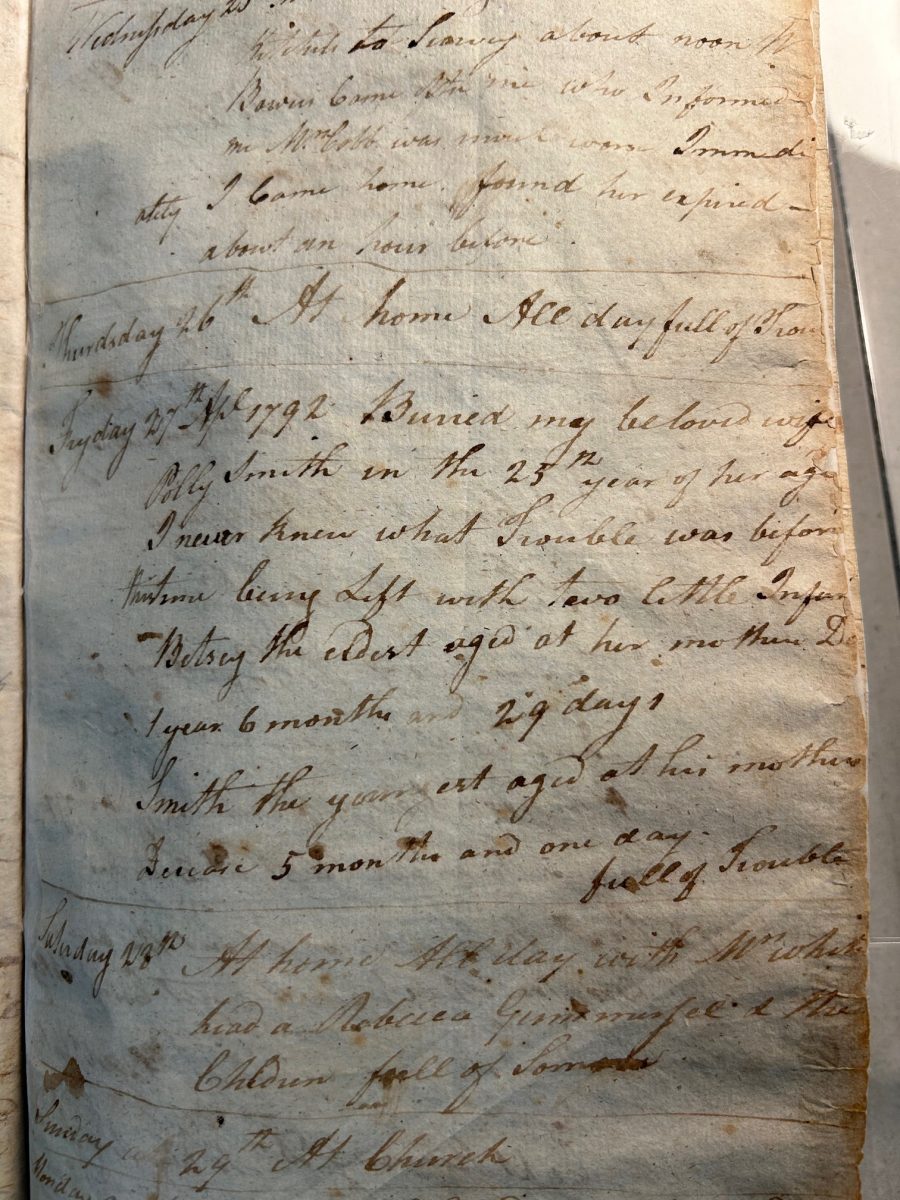 Wednsday 25
to about noon
Came after me who Informed
me Mrs Cobb was much worse Immedi
ately I Came home found her expired -
about an hour before
Thursday 26th At home All day full of Trou
Fryday 27th Apl 1792 Buried my beloved wife
Polly Smith in the 25th year of her age
I never knew what Trouble was before
this time being Left with two little Infan
Betsey the eldest aged at her mothers De
1 year 6 months and 29 days
Smith the youngest aged at his mothers
Decease 5 months and one day.
full of Trouble
Saturday 28th At home All day with Mrs White
head a Rebecca & the
Children full of Sorrow
Sunday 29th At Church
Monday